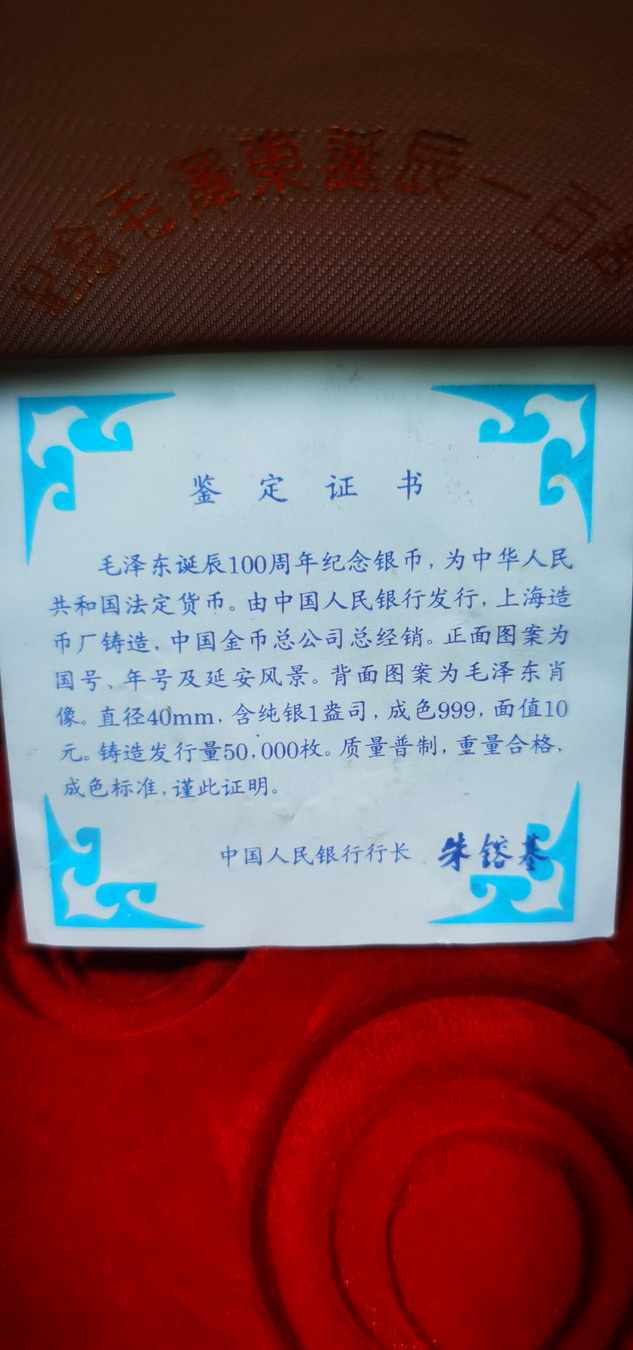 紀念毛澤東誕辰一百周
鉴定证书
毛泽东诞辰100周年纪念银币,为中华人民
共和国法定货币。由中国人民银行发行,上海造
币厂铸造,中国金币总公司总经销。正面图案为
国号、年号及延安风景。背面图案为毛泽东肖
像。直径40mm,含纯银1盎司,成色999,面值10
元。铸造发行量50,000枚。质量普制,重量合格,
成色标准,谨此证明。
中国人民银行行长 朱镕基